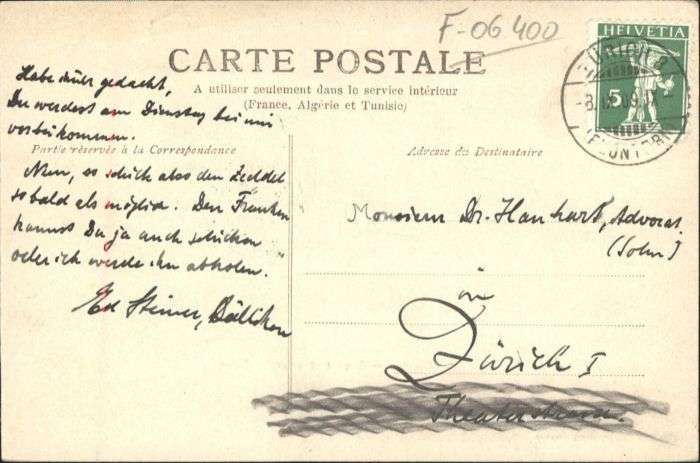 F-06 400
HELVETIA
5
CARTE POSTALE
A utiliser seulement dans le service intérieur
(France, Algérie et Tunisie)
Partie réservée à la Correspondance
Adresse du Destinataire
Habe immer gedacht,
Du werdest am Dienstag bei mir
vorbeikommen.
Nun, so schick also den Zeddel
sobald als möglich. Den Franken
kannst Du ja auch schicken
oder ich werde ihn abholen.
Ed Steiner, Dällikon
Monsieur Dr. Hanhart, Advocat
(Sohn)
in
Zürich I
Theaterstrasse.